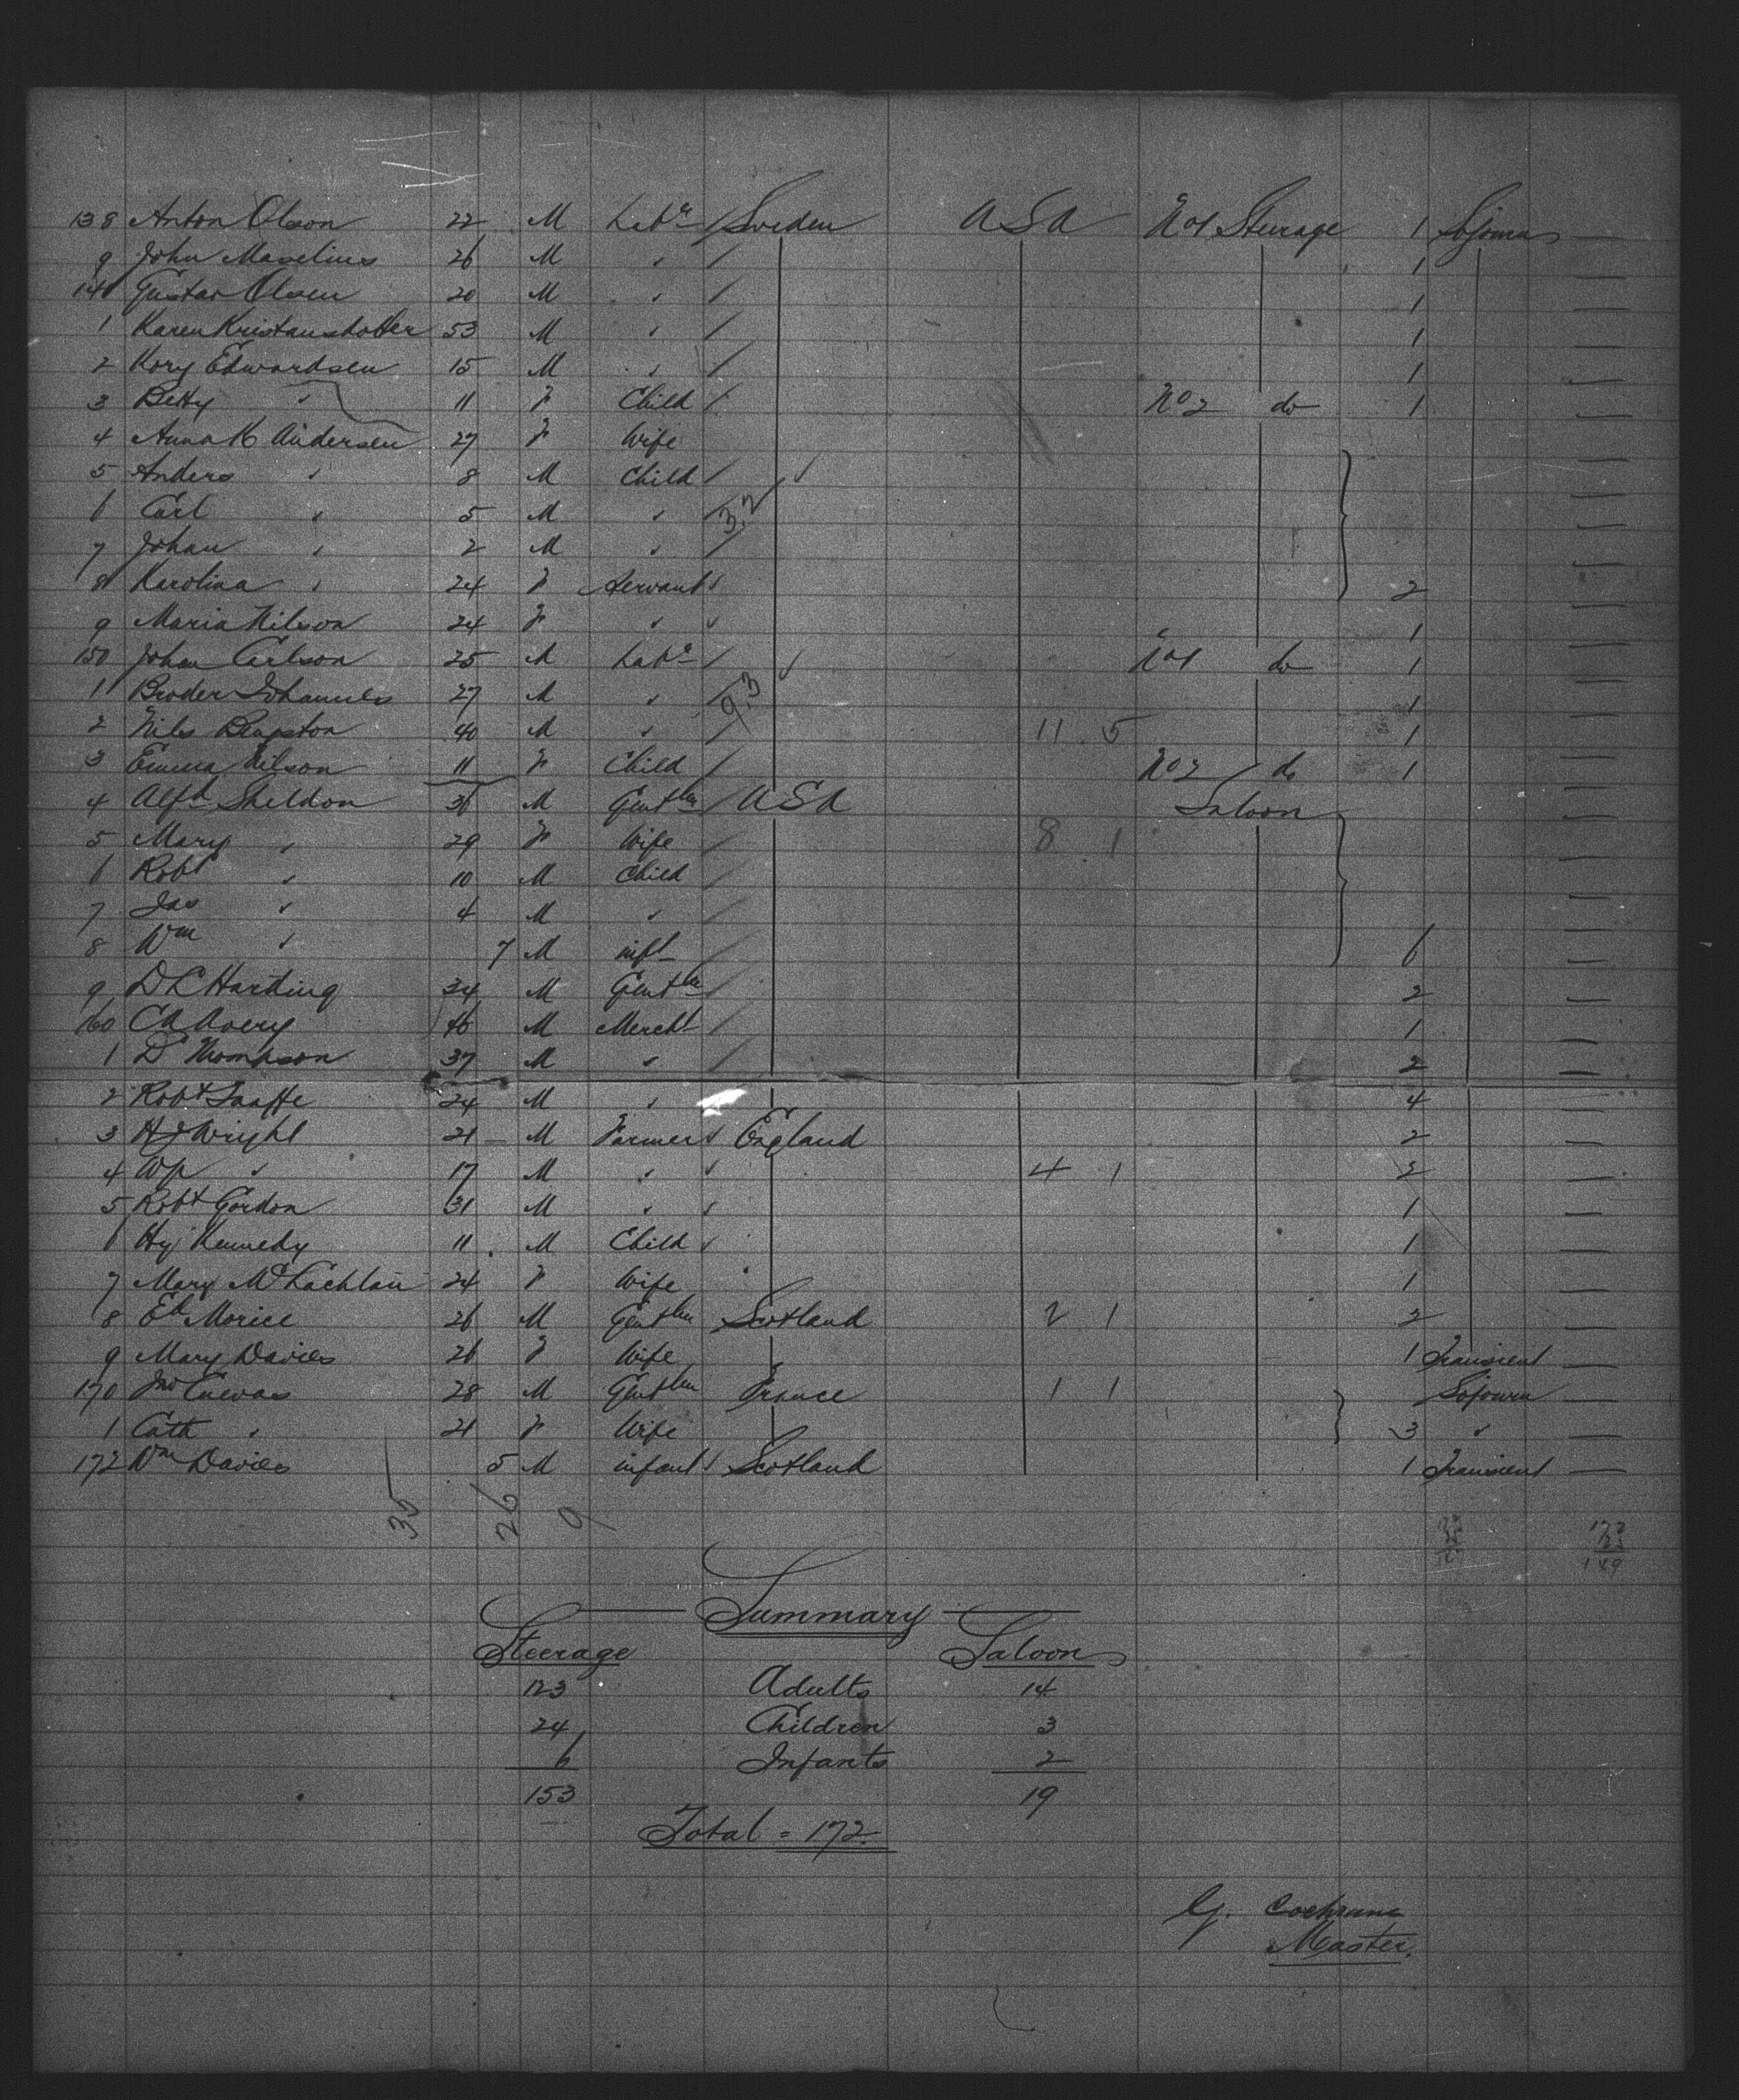 138 Anton Olson 22 M Labr Sweden USA No 1 Steerage 1 Sojourn —
9 John Maselius 26 M " 1 —
140 Gustav Olsen 20 M " 1 —
1 Karen 53 M " 1 —
2 Kory Edwardsen 15 M " 1 —
3 Betty " 11 F Child No 2 do 1 —
4 Anna K Andersen 27 F Wife —
5 Anders " 8 M Child —
6 Carl " 5 M " 3.2 —
7 Johan " 2 M " —
8 Karolina " 24 F Servant 2 —
9 Maria Nilson 24 F " 1 —
150 Johan Carlson 25 M Labr No 1 do 1 —
1 Broder Johannes 27 M " 9.3 1 —
2 Nils Bengston 40 M " 11 . 5 1 —
3 Emma Nilson 11 F Child No 2 do 1 —
4 Alfd Sheldon 36 M Gentlm USA Saloon —
5 Mary " 29 F Wife 8 . 1 —
6 Robt " 10 M Child —
7 Jas " 4 M " —
8 Wm " 7 M inft 6 —
9 D C Harting 34 M Gentlm 2 —
160 C A Avery 46 M Mercht 1 —
1 D Thompson 37 M " 2 —
2 Robt 24 M " 4 —
3 H J Wright 21 M Farmer England 2 —
4 Wm " 17 M " 4 1 2 —
5 Robt Gordon 31 M " 1 —
6 Hy Kennedy 11 M Child 1 —
7 Mary McLachlan 24 F Wife 1 —
8 Ed Morice 26 M Gentlm Scotland 2 1 2 —
9 Mary Davies 26 F Wife " 1 Transient —
170 Jno Cuevas 28 M Gentlm France 1 1 Sojourn —
1 Cath " 21 F Wife 3 " —
172 Wm Davies 5 M infant Scotland 1 Transient —
35 26 9
172
23
149
Summary
Steerage Saloon
123 Adults 14
24 Children 3
6 Infants 2
153 19
Total = 172
G. Cochrane
Master.